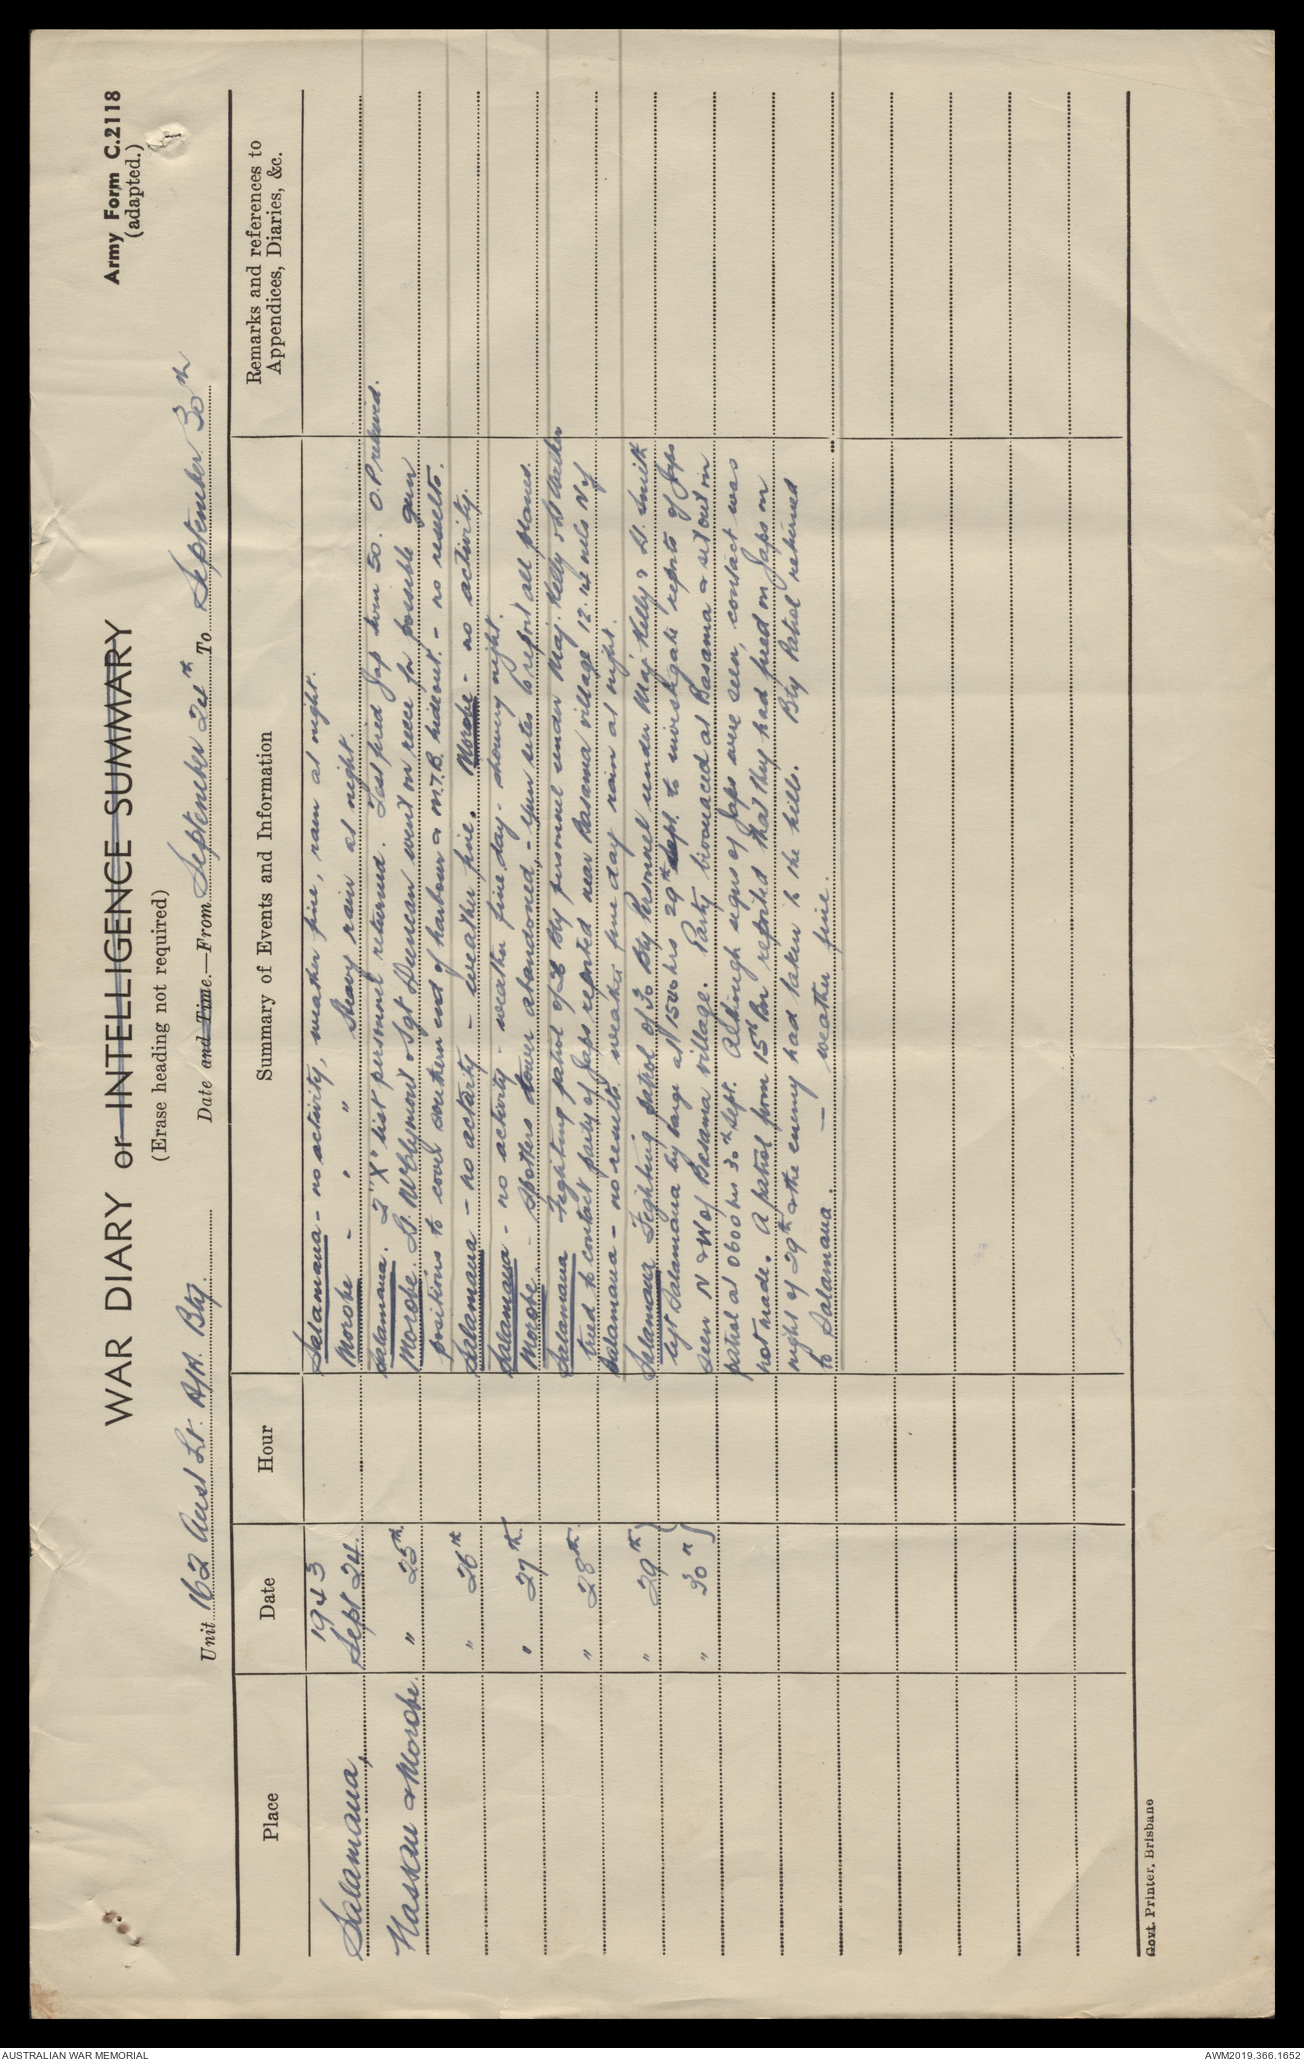 Army Form C.2118
(adapted.)
WAR DIARY or INTELLIGENCE SUMMARY
(Erase heading not required)
Unit 162 Aust Lt. A/A. Bty. Date and Time.—From September 24th To September 30th
Place Date Hour Summary of Events and Information Remarks and references to Appendices, Diaries, &c.
Salamaua, 1943 Sept 24. Salamaua - no activity, weather fine, rain at night.
Morobe - " " Heavy rain at night.
Nassau & Morobe. " 25th. Salamaua. 2 "X" list personnel returned. Test fired Jap twin 50. O.P. relieved.
Morobe. Lt. McClymont & Sgt Duncan went on recce for possible gun
positions to cover southern end of harbour & M.T.B. hideout. - no results.
" 26th Salamaua - no activity - weather fine. Morobe - no activity.
" 27th. Salamaua - no activity - weather fine day - showery night.
Morobe. - Spotters tower abandoned, - Gun sites to report all planes.
" 28th. Salamaua Fighting patrol of Bty personnel under Maj. Kelly & Lt
tried to contact party of Japs reported near Basama village 12 mls N of
Salamaua - no results. weather fine day rain at night.
" 29th Salamaua Fighting patrol of 30 Bty Personnel under Maj Kelly & Lt. Smith
" 30th left Salamaua by barge at 1500 hrs 29th Sept. to investigate reports of Japs
seen N & W of Basama village. Party bivouaced at Basama & set out on
patrol at 0600 hrs 30th Sept. Although signs of Japs were seen, contact was
not made. A patrol from 15th Bn reported that they had fired on Japs on
night of 29th & the enemy had taken to the hills. Bty Patrol returned
to Salamaua. — weather fine.
Govt. Printer, Brisbane
AUSTRALIAN WAR MEMORIAL AWM2019.366.1652